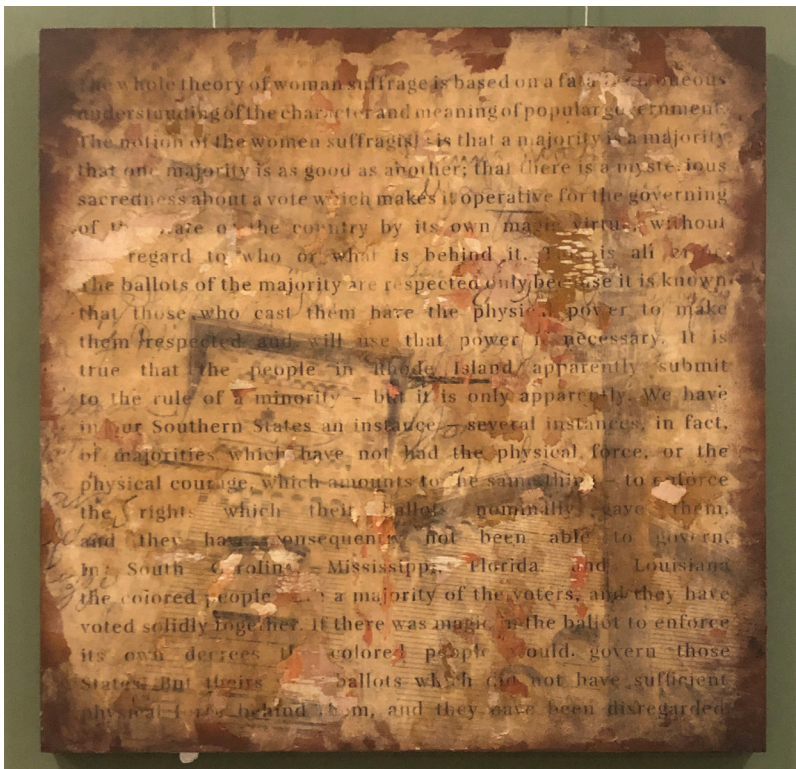 The whole theory of woman suffrage is based on a fatally erroneous
understanding of the character and meaning of popular government.
The notion of the women suffragists is that a majority is a majority
that one majority is as good as another; that there is a mysterious
sacredness about a vote which makes it operative for the governing
of the state or the country by its own magic virtue, without
regard to who or what is behind it. This is all error.
the ballots of the majority are respected only because it is known
that those who cast them have the physical power to make
them respected and will use that power if necessary. It is
true that the people in Rhode Island apparently submit
to the rule of a minority - but it is only apparently. We have
in our Southern States an instance - several instances, in fact,
of majorities which have not had the physical force, or the
physical courage, which amounts to the same thing - to enforce
the rights which their ballots nominally gave them,
and they have consequently not been able to govern.
In South Carolina, Mississippi, Florida and Louisiana
the colored people a majority of the voters, and they have
voted solidly together. If there was magic in the ballot to enforce
its own decrees the colored people would govern those
States. But theirs ballots which did not have sufficient
physical force behind them, and they have been disregarded